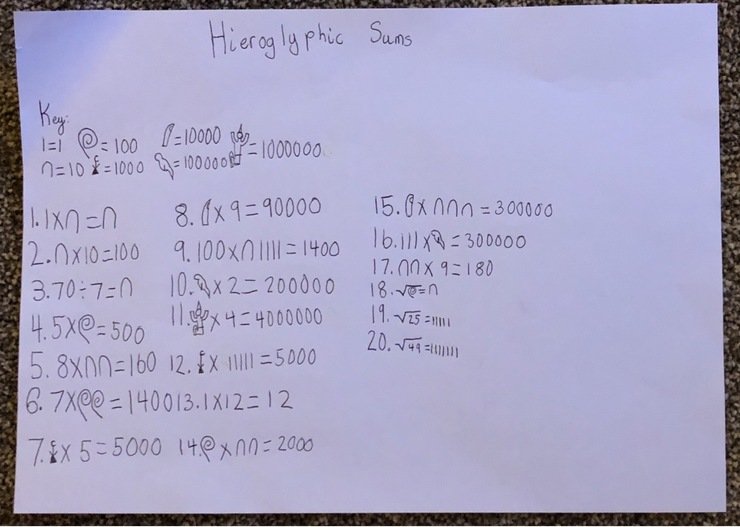 Hieroglyphic Sums
Key:
I=1 𓍢=100 𓂭=10000 𓁨=1000000
∩=10 𓆼=1000 𓆐=100000
1. I×∩=∩
2. ∩×10=100
3. 70÷7=∩
4. 5×𓍢=500
5. 8×∩∩=160
6. 7×𓍢𓍢=1400
7. 𓆼×5=5000
8. 𓂭×9=90000
9. 100×∩IIII=1400
10. 𓆐×2=200000
11. 𓁨×4=4000000
12. 𓆼×IIIII=5000
13. 1×12=12
14. 𓍢×∩∩=2000
15. 𓂭×∩∩∩=300000
16. III×𓆐=300000
17. ∩∩×9=180
18. √𓍢=∩
19. √25=IIIII
20. √49=IIIIIII